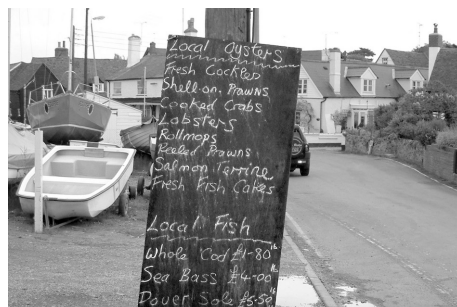 Local Oysters
Fresh Cockles
Shell-on Prawns
Cooked Crabs
Lobsters
Rollmops
Peeled Prawns
Salmon Terrine
Fresh Fish Cakes
Local Fish
Whole Cod £1-80 lb
Sea Bass £4-00 lb
Dover Sole £5-50 lb